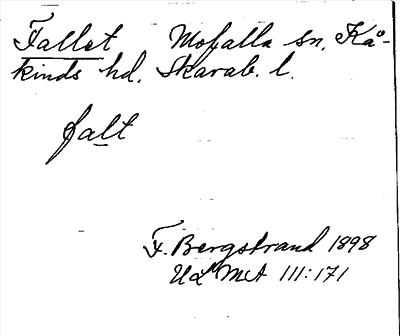 Fallet Mofalla sn, Kå-
kinds hd. Skarab. l.
falt
F. Bergstrand 1898
Ud Mct III:171